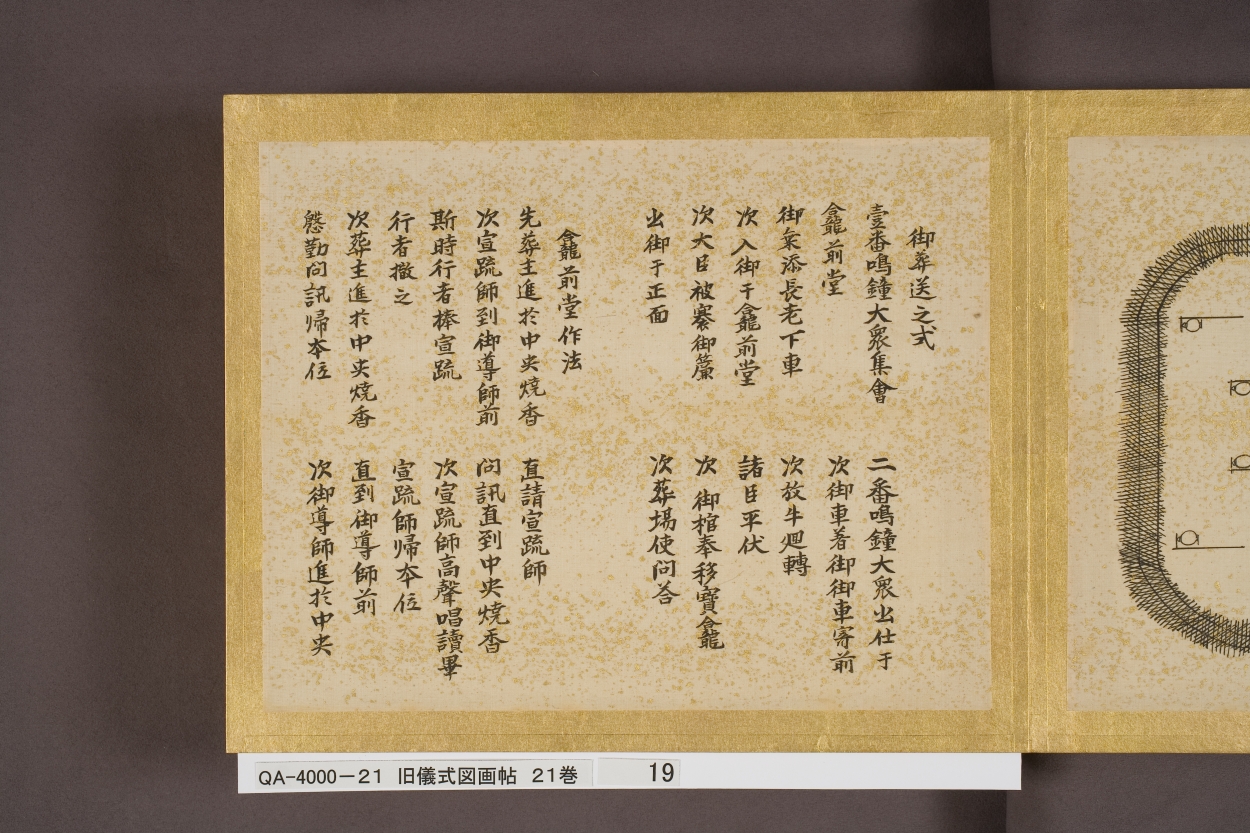 御葬送之式
壹番鳴鐘大衆集會　二番鳴鐘大衆出仕于
龕前堂　次御車着御御車寄前
御氣添長老下車　次放牛廻轉
次入御于龕前堂　諸臣平伏
次大臣被褰御簾　次御棺奉移寶龕
出御于正面　次葬場使問答
龕前堂作法
先葬主進於中央焼香　直請宣疏師
次宣疏師到御導師前　問訊直到中央焼香
斯時行者捧宣疏　次宣疏師高聲唱讀畢
行者撤之　宣疏師帰本位
次葬主進於中央焼香　直到御導師前
慇勤問訊帰本位　次御導師進於中央
QA-4000-21 旧儀式図画帖 21巻 19